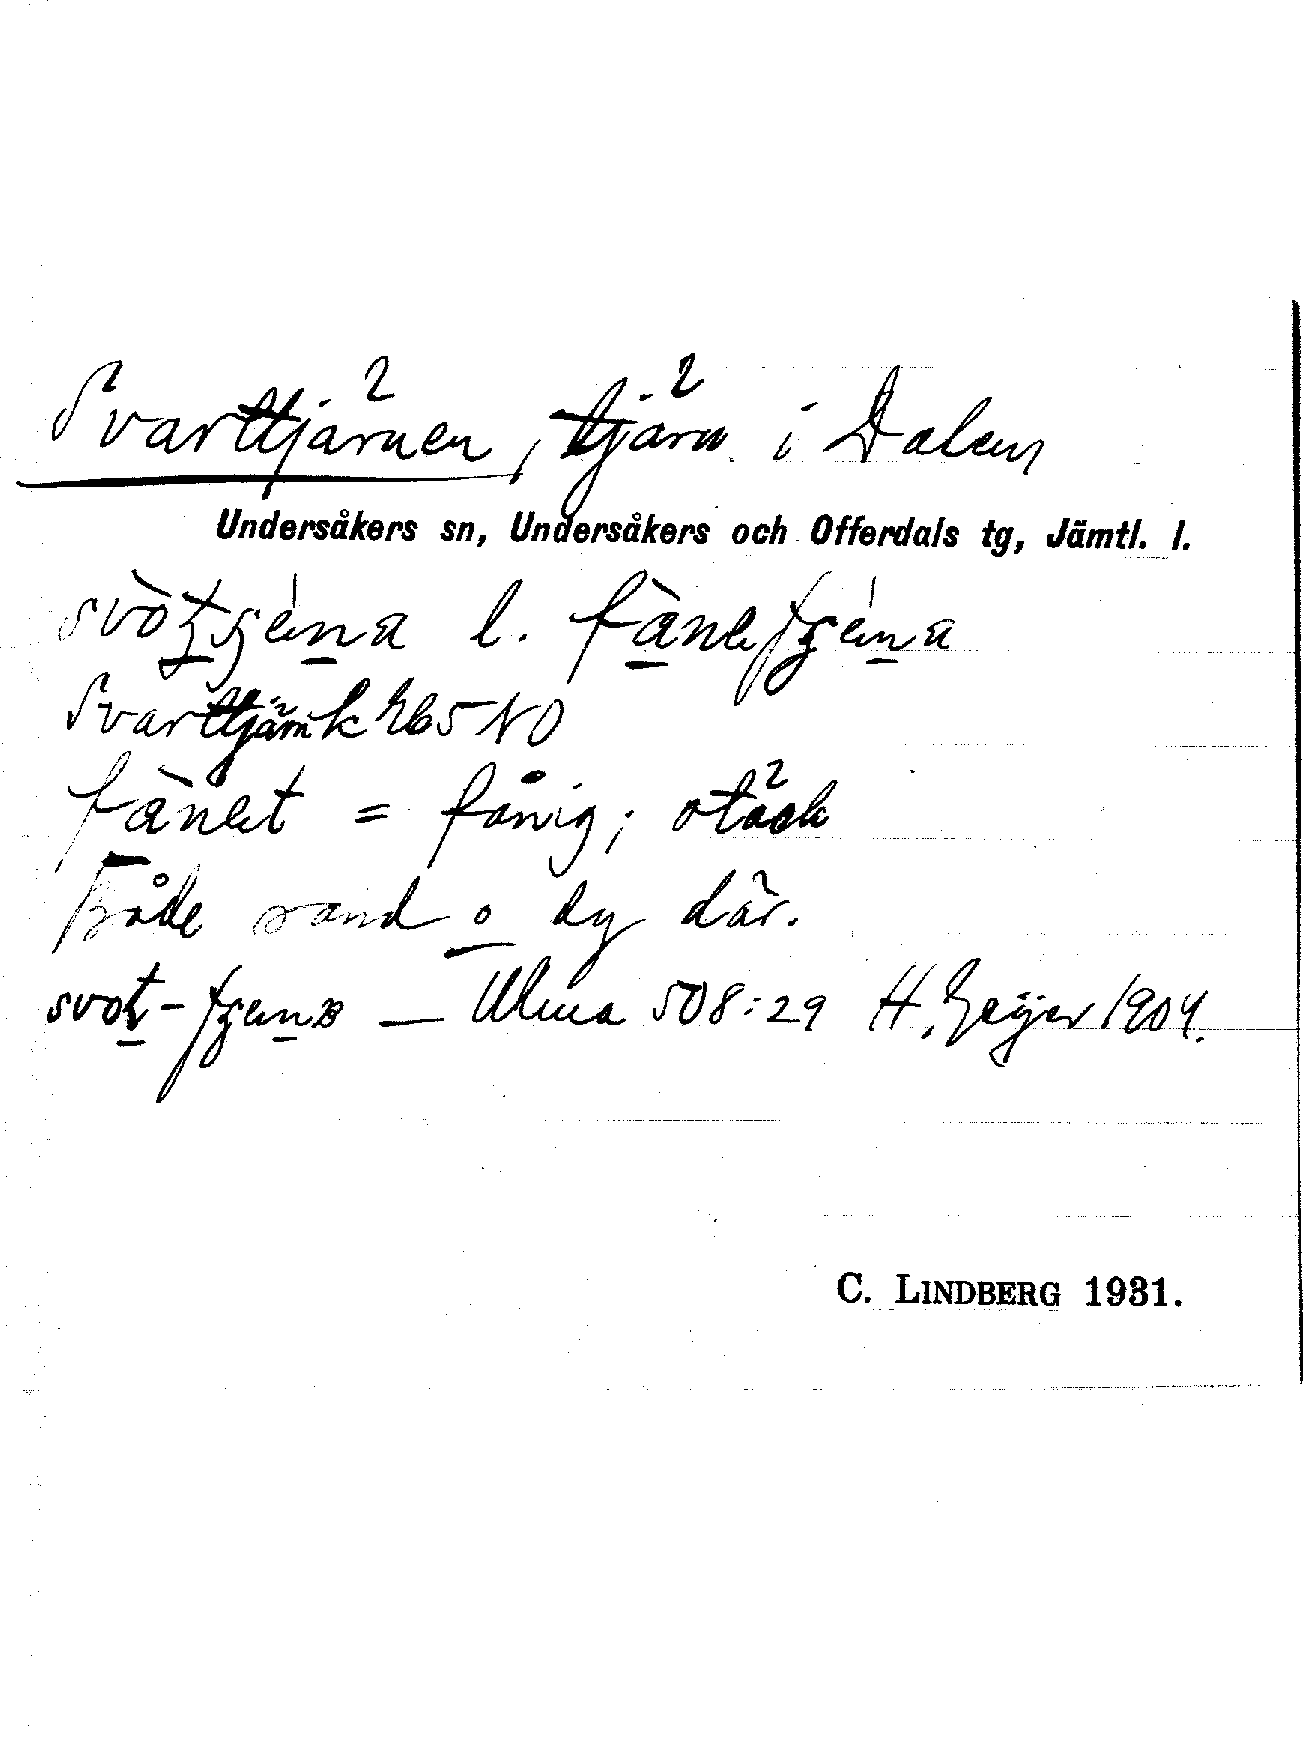 Svarttjärnen, tjärn i Dalen
Undersåkers sn, Undersåkers och Offerdals tg, Jämtl. l.
l.
Svarttjärn k 265 NO
fånet = fånig; otäck
Både sand o dy där.
— Ulma 508:29 H. Geijer 1904.
C. LINDBERG 1931.